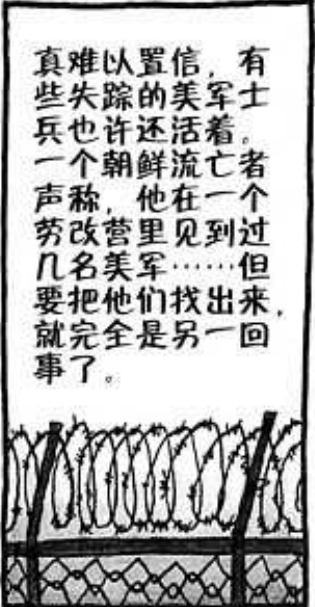 真难以置信，有
些失踪的美军士
兵也许还活着。
一个朝鲜流亡者
声称，他在一个
劳改营里见到过
几名美军……但
要把他们找出来，
就完全是另一回
事了。